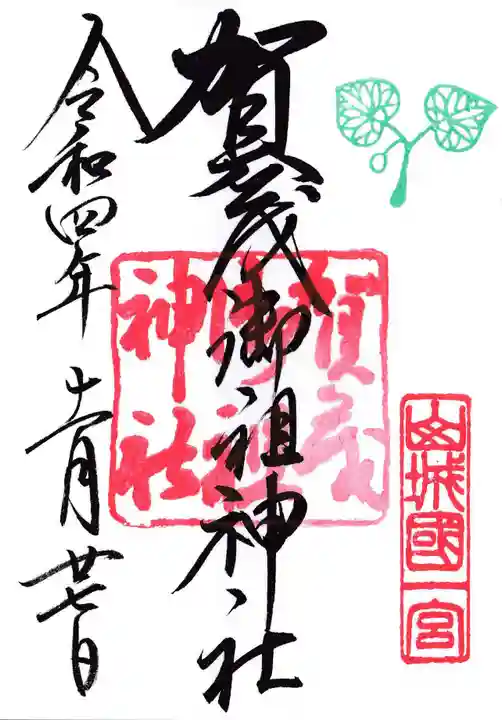 山城國一宮
賀茂御祖神社
賀茂
御祖
神社
令和四年十一月廿七日